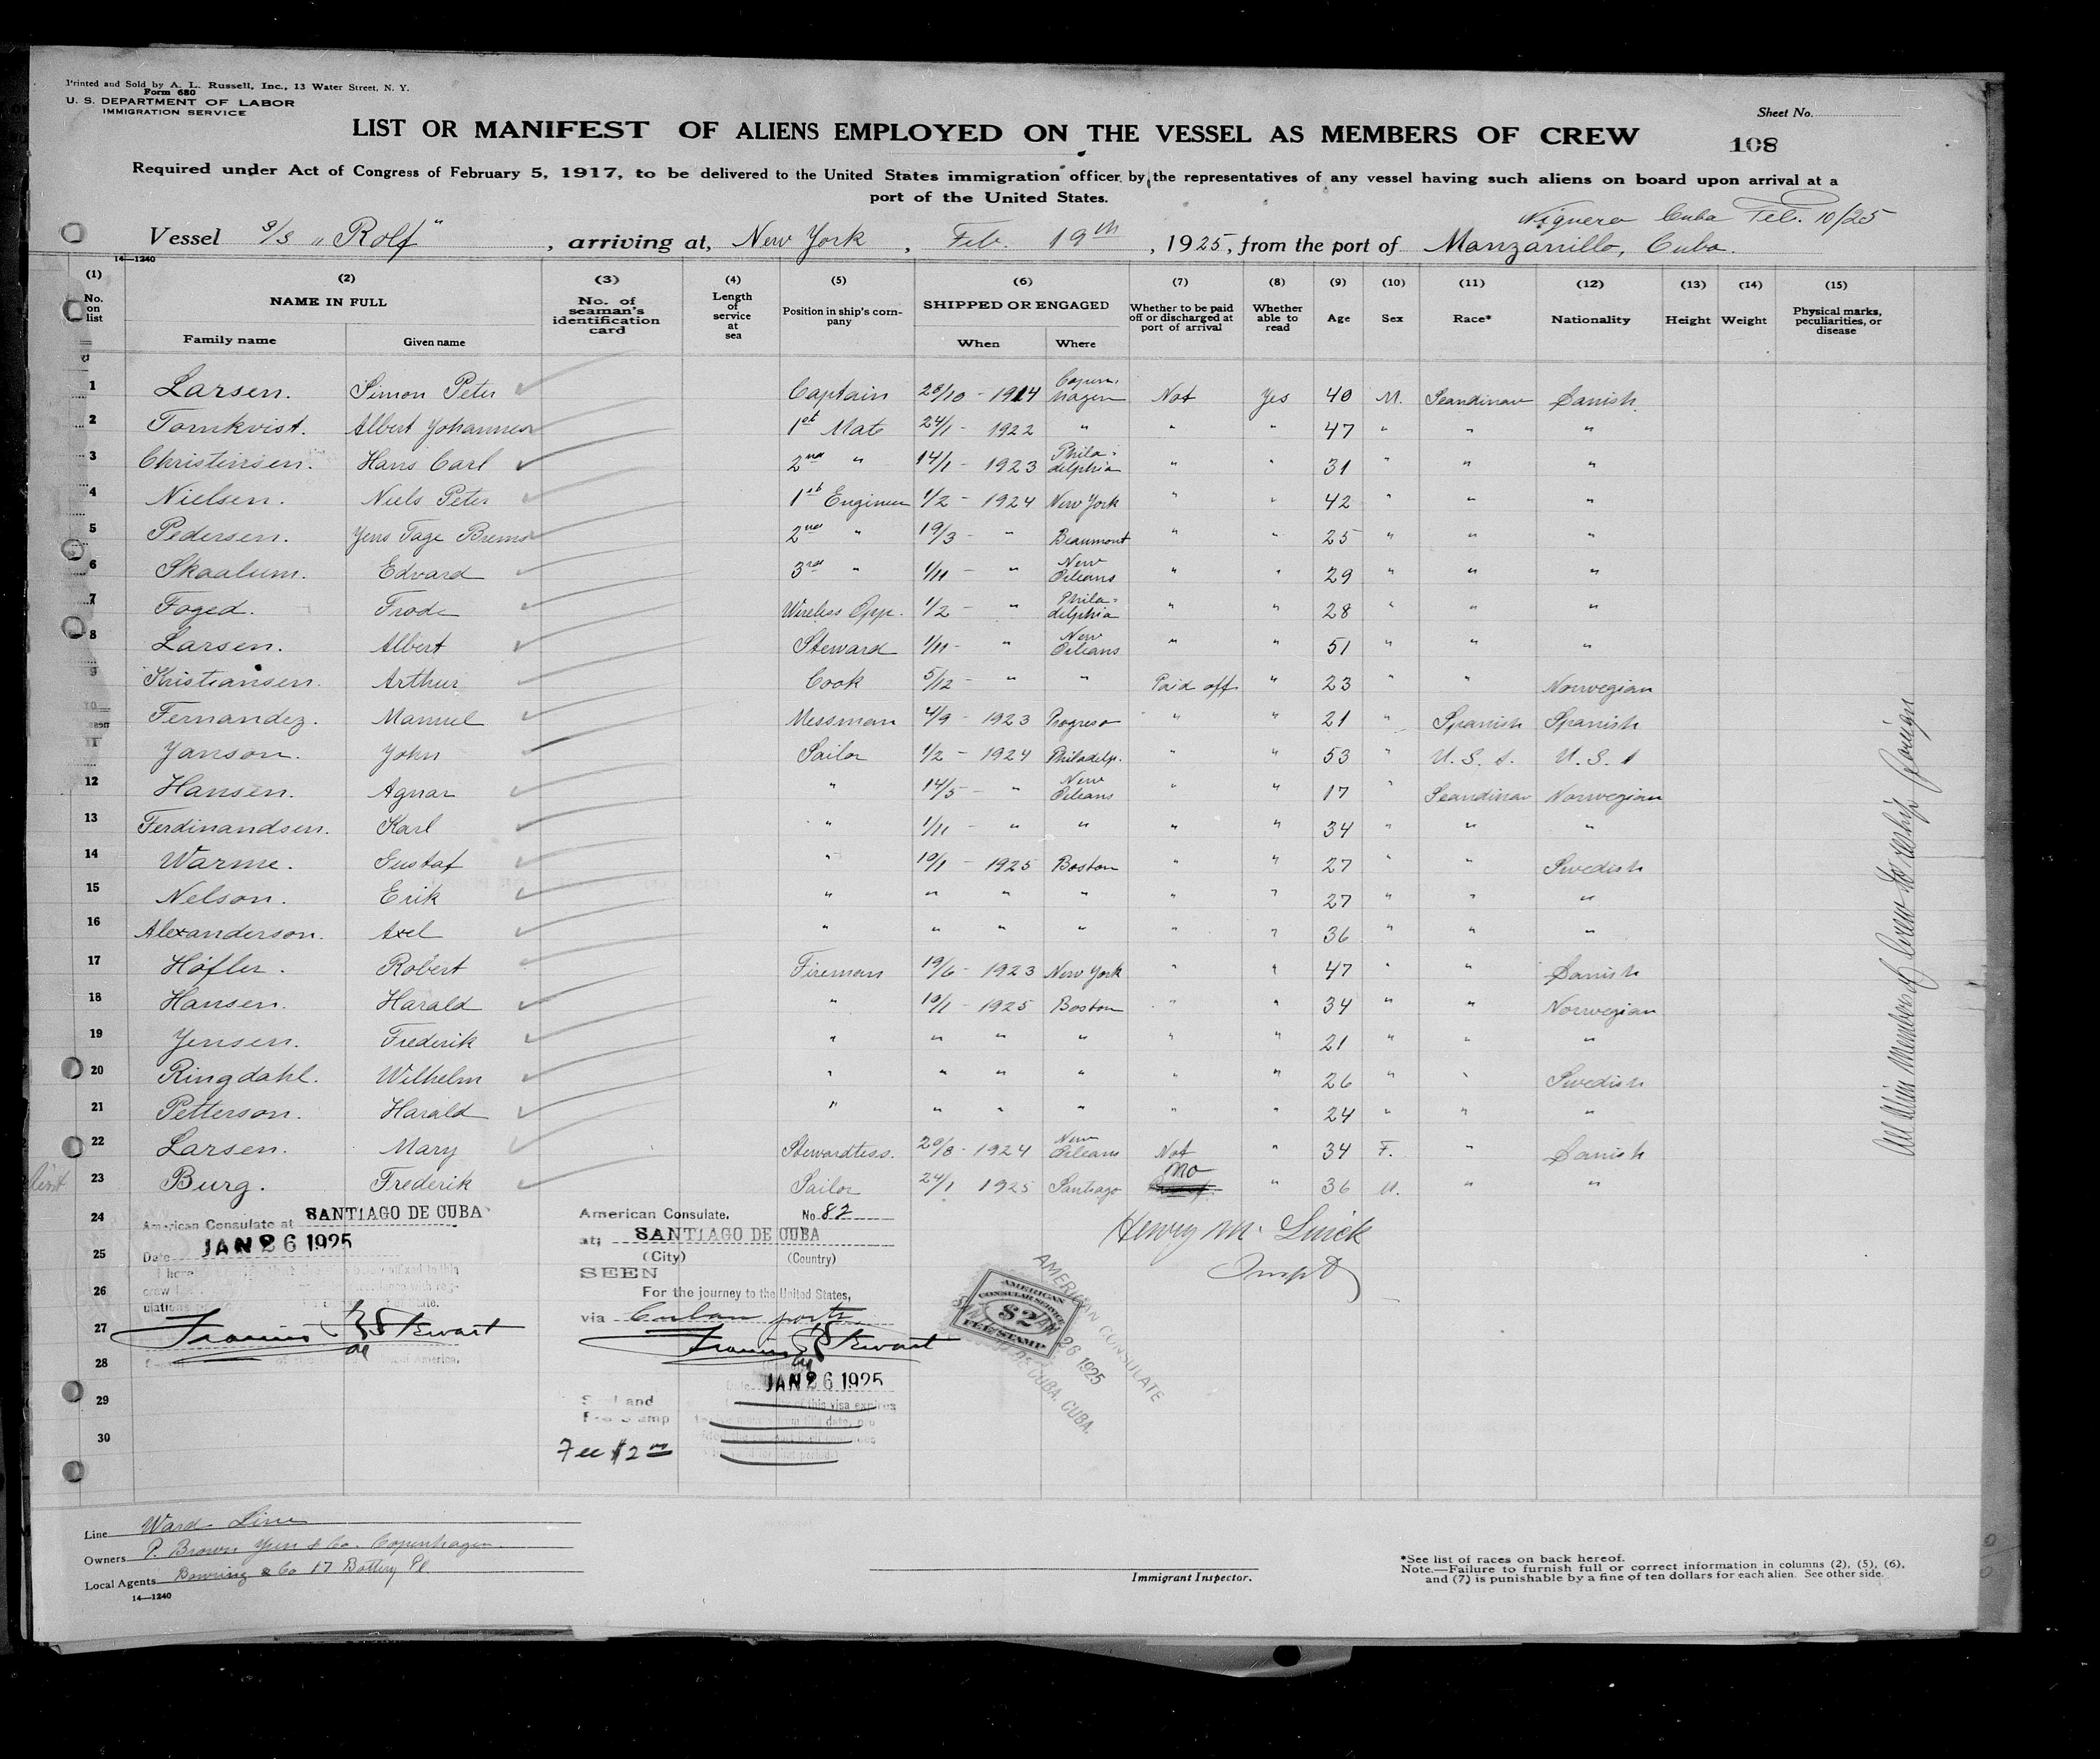 Printed and Sold by A. L. Russell, Inc., 13 Water Street, N. Y.
Form 680
U. S. DEPARTMENT OF LABOR
IMMIGRATION SERVICE
Sheet No.
LIST OR MANIFEST OF ALIENS EMPLOYED ON THE VESSEL AS MEMBERS OF CREW
108
Required under Act of Congress of February 5, 1917, to be delivered to the United States immigration officer by the representatives of any vessel having such aliens on board upon arrival at a
port of the United States.
Niquero Cuba Feb. 10/25
Vessel S/S "Rolf", arriving at, New York, Feb. 19th, 1925, from the port of Manzanillo, Cuba.
14—1240
(1) (2) (3) (4) (5) (6) (7) (8) (9) (10) (11) (12) (13) (14) (15)
No. on list NAME IN FULL No. of seaman's identification card Length of service at sea Position in ship's company SHIPPED OR ENGAGED Whether to be paid off or discharged at port of arrival Whether able to read Age Sex Race* Nationality Height Weight Physical marks, peculiarities, or disease
Family name Given name When Where
1 Larsen. Simon Peter Captain 28/10 - 1914 Copenhagen Not Yes 40 M. Scandinav Danish
2 Tornkvist. Albert Johannes 1st Mate 24/1 - 1922 " " " 47 " " "
3 Christensen. Hans Carl 2nd " 14/1 - 1923 Philadelphia " " 31 " " "
4 Nielsen. Niels Peter 1st Engineer 1/2 - 1924 New York " " 42 " " "
5 Pedersen. Jens Tage Brems 2nd " 19/3 - " Beaumont " " 25 " " "
6 Skaalum. Edvard 3rd " 1/11 - " New Orleans " " 29 " " "
7 Foged. Frode Wireless Opp. 1/2 - " Philadelphia " " 28 " " "
8 Larsen. Albert Steward 1/11 - " New Orleans " " 51 " " "
9 Kristiansen. Arthur Cook 5/12 - " " Paid off " 23 " " Norwegian
10 Fernandez. Manuel Messman 4/9 - 1923 Progreso " " 21 " Spanish Spanish
11 Janson. John Sailor 1/2 - 1924 Philadelp. " " 53 U. S. A. U. S. A
12 Hansen. Agnar " 14/5 - " New Orleans " " 17 " Scandinav Norwegian
13 Ferdinandsen. Karl " 1/11 - " " " " 34 " " "
14 Warme. Gustaf " 10/1 - 1925 Boston " " 27 " " Swedish
15 Nelson. Erik " " " " " " 27 " " "
16 Alexanderson. Axel " " " " " " 36 " " "
17 Höfler. Robert Fireman 19/6 - 1923 New York " " 47 " " Danish
18 Hansen. Harald " 10/1 - 1925 Boston " " 34 " " Norwegian
19 Jensen. Frederik " " " " " " 21 " " "
20 Ringdahl. Wilhelm " " " " " " 26 " " Swedish
21 Petterson. Harald " " " " " " 24 " " "
22 Larsen. Mary Stewardtess. 20/8 - 1924 New Orleans Not " 34 F. " Danish
23 Burg. Frederik Sailor 24/1 1925 Santiago No " 36 M. " "
24
25
26
27
28
29
30
American Consulate at SANTIAGO DE CUBA
Date JAN 26 1925
Francis R Stewart
American Consulate. No. 82
at; SANTIAGO DE CUBA
(City) (Country)
SEEN
For the journey to the United States,
via Cuban ports
Francis R Stewart
JAN 26 1925
Seal and
Fee Stamp
Fee $2 00
AMERICAN
CONSULAR SERVICE
$2
FEE STAMP
AMERICAN CONSULATE
JAN 26 1925
SANTIAGO DE CUBA, CUBA.
Henry M.
Insptr
All Alien Members of Crew to reship foreign
Line Ward Line
Owners P. Brown Jun & Co. Copenhagen.
Local Agents Bowring & Co 17 Battery Pl
14—1240
Immigrant Inspector.
*See list of races on back hereof.
Note.—Failure to furnish full or correct information in columns (2), (5), (6),
and (7) is punishable by a fine of ten dollars for each alien. See other side.